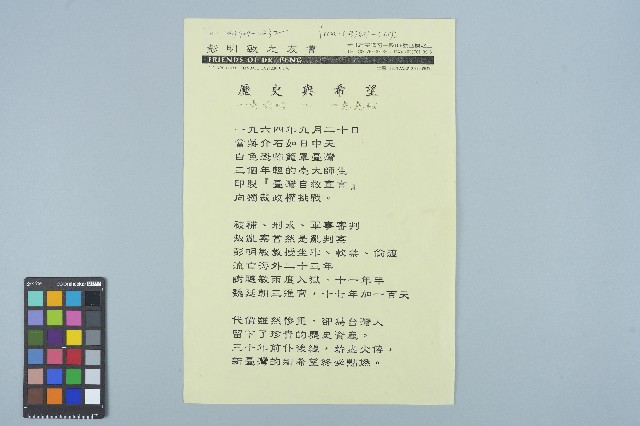 彭明敏之友會
FRIENDS OF DR. PENG
歷史與希望
一九六四年九月二十日
當蔣介石如日中天
白色恐怖籠罩臺灣
三個年輕的臺大師生
印製『臺灣自救宣言』
向獨裁政權挑戰。
被補、刑求、軍事審判
叛亂案當然是亂判案
彭明敏教授坐牢、軟禁、偷渡
流亡海外二十三年
謝聰敏兩度入獄、十一年半
魏廷朝三進宮，十七年加一百天
代價雖然慘重，卻為台灣人
留下了珍貴的歷史資產。
三十年前仆後繼，薪盡火傳，
新臺灣的新希望終必點燃。